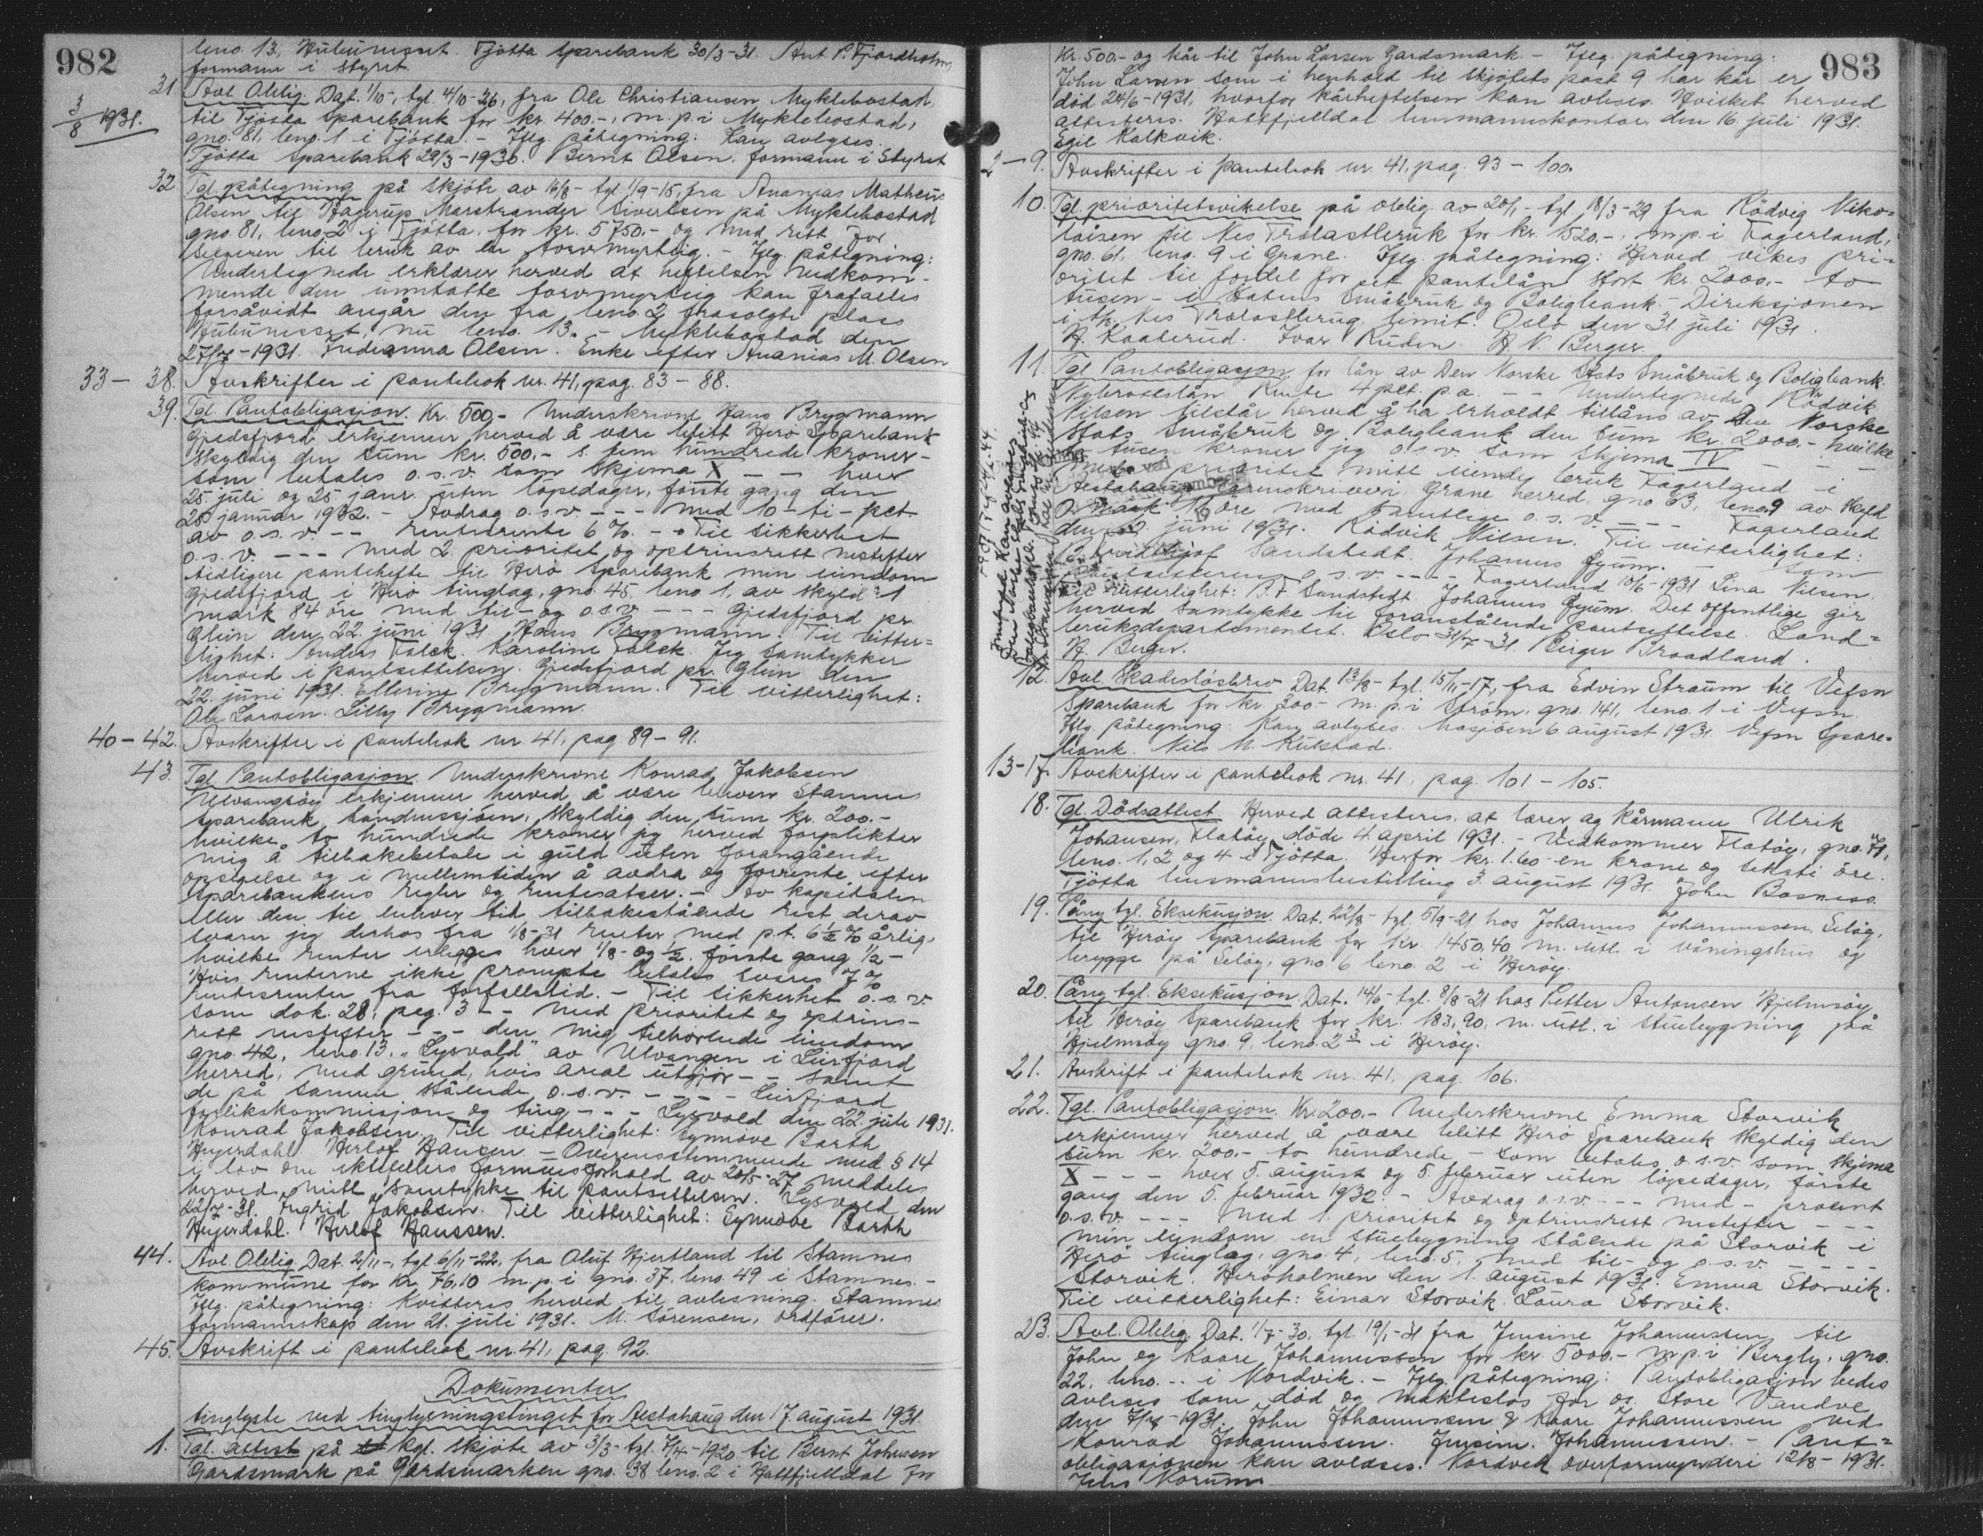 982
bno. 13, Hubunesset. Tjøtta Sparebank 30/3-31. Ant P. Fjordholm
formann i styret.
3/8 1931.
31. Avl. Oblig. Dat. 1/10-, tgl. 4/10-26, fra Ole Christiansen, Myklebostad
til Tjøtta Sparebank for kr. 400.-, m.p.i Myklebostad,
gno. 81, bno. 1 i Tjøtta. - Iflg påtegning: Kan avlyses.
Tjøtta Sparebank 29/3-1930. Bernt Olsen, formann i Styret
32 Tgl. påtegning på skjøte av 16/8- tgl 1/9-15, fra Ananias Matheus
Olsen til Hagerup Marstrander Sivertsen på Myklebostad
gno 81, bno 2 i Tjøtta, for kr. 5750.- og med rett for
selgeren til bruk av en torvmyrteig. - Iflg. påtegning:
Undertegnede erklærer herved at heftelsen vedkom-
mende den unntatte torvmyrteig kan frafalles
forsåvidt angår den fra bno. 2 frasolgte plass
Hubunesset, nu bno. 13. - Myklebostad den
27/7-1931. Indianna Olsen. Enke efter Ananias M. Olsen
33 - 38. Avskrifter i pantebok nr. 41, pag. 83 - 88.
39. Tgl. Pantobligasjon. Kr. 500.- Underskrevne Hans Brygmann
Gjedsfjord, erkjenner herved å være blitt Herø Sparebank
skyldig den sum kr. 500.- s. fem hundrede kroner-
som betales o.s.v. som skjema X - - hver
25. juli og 25 janr. uten løpedager, første gang den
25 januar 1932. - Avdrag o.s.v. - - - med 10 - ti - pct
av o.s.v. - - Renterente 6 %. - Til sikkerhet
o.s.v. - - - med 2 prioritet og optrinsrett nestefter
tidligere pantehefte til Herø Sparebank min eiendom
Gjedsfjord i Herø tinglag, gno. 45, bno 1, av skyld 1
mark 84 øre, med til- og o.s.v. - - - Gjedsfjord pr
Glein den 22. juni 1931 Hans Brygmann. Til vitter-
lighet: Anders Falck. Karoline Falck. Jeg samtykker
herved i pantsettelsen. Gjedsfjord pr. Glein den
22. juni 1931. Ellerine Brygmann. Til vitterlighet:
Ole Larsen. Lilly Brygmann.
40 - 42. Avskrifter i pantebok nr. 41, pag 89 - 91.
43. Tgl. Pantobligasjon. Underskrevne Konrad Jakobsen
Ulvangsøy erkjenner herved å være bleven Stamnes
Sparebank, Sandnessjøen, skyldig den sum kr. 200.-
hvilke to hundrede kroner jeg herved forplikter
mig å tilbakebetale i guld uten forangående
opsigelse og i mellemtiden å avdra og forrente efter
Sparebankens regler og rentesatser. - Av kapitalen
eller den til enhver tid tilbakestående rest derav
svarer jeg derhos fra 1/8-31 renter med p.t. 6 1/2 % årlig,
hvilke renter erlegges hver 1/8- og 1/2, første gang 1/2 -
Hvis renterne ikke prompte betales svares % og
rentesrenter fra forfallstid. - Til sikkerhet o.s.v.
som dok. 28, pag. 3 - - Med prioritet og optrins-
rett nestefter - - - den mig tilhørende eiendom
gno. 42, bno. 13, "Lysvold" av Ulvangen i Leirfjord
herred, med grund, hvis areal utgjør - - samt
de på samme stående o.s.v. - - - - Leirfjord
forlikskommisjon og ting - - - Lysvold den 22. juli 1931.
Konrad Jakobsen. Til vitterlighet: Synnøve Barth
Hujerdahl. Herlof Hansen. - Overensstemmende med § 14
i lov om ektefellers formuesforhold av 20/5-27 meddeles
herved mitt samtykke til pantsettelsen. Lysvold den
22/7-31. Ingrid Jakobsen. Til vitterlighet: Synnøve Barth
Hujerdahl. Herlof Hanssen.
44. Avl. Oblig. Dat. 2/11-, tgl 6/11-22, fra Oluf Hjertland til Stamnes
kommune for kr 76.10 m.p.i gno. 37, bno. 49 i Stamnes. -
Iflg. påtegning: Kvitteres herved til avlesning. Stamnes
formannskap den 21. juli 1931. M. Sørensen, ordfører.
45. Avskrift i pantebok nr. 41, pag. 92.
Dokumenter
tinglyste ved tinglysningstinget for Alstahaug den 17. august 1931.
1. Tgl. attest på kgl. skjøte av 3/3- tgl. 7/4-1920 til Bernt Johnsen
Gardsmark på Gardsmarken gno. 38 bno. 2 i Hattfjelldal for
983
Kr. 500.- og kår til John Larsen Gardsmark - Iflg. påtegning:
John Larsen som i henhold til skjøtets post 9 har kår er
død 24/6-1931, hvorfor kårheftelsen kan avleses. Hvilket herved
attesteres. Hattfjelldal lensmannskontor den 16 juli 1931.
Egil Kalkvik.
2 - 9. Avskrifter i pantebok nr. 41, pag. 93 - 100.
10. Tgl. prioritetsvikelse på oblig. av 20/1- tgl 18/3-29 fra Rødvig Niko-
laisen til Nes Trælastbruk for kr. 1520.-, m.p.i Fagerland,
gno. 61, bno. 9 i Grane. Iflg påtegning: Herved vikes pri-
oritet til fordel for et pantelån stort kr. 2000.- to
tusen - i Statens Småbruk og Boligbank. - Direksjonen
i A/S. Nes Trælastbrug Limit. Oslo den 31 juli 1931.
H. Kaaterud. Ivar Ruden. H. N. Berger.
11. Tgl. Pantobligasjon for lån av Den Norske Stats Småbruk og Boligbank.
Nybrottslån Rente 4 pct. p.a. - - Undertegnede Rødvik
Nilsen tilstår herved å ha erholdt tillåns av Den Norske
Stats Småbruk og Boligbank den sum kr. 2000.- hvilke
to tusen kroner jeg o.s.v. som skjema IV - - -
prioritet mitt eiende bruk Fagerland i
Alstahaug sorenskriveri, Grane herred, gno 63, bno. 9 av skyld
0 mark 16 øre med samtlige o.s.v. - - - Fagerland
den juni 1931. Rødvik Nilsen. Til vitterlighet:
Sandstedt. Johannes Øyum. - som
o.s.v. - - - - Fagerland 10/6-1931 Lina Nilsen.
Til vitterlighet: P. F. Sandstedt. Johannes Øyum. Det offentlige gir
herved samtykke til foranstående pantsettelse. Land-
bruksdepartementet. Oslo 31/7-31. Birger Braadland.
H. Berger.
12. Avl. Skadesløsbrev Dat. 13/8- tgl. 15/11-17, fra Edvin Straum til Vefsn
Sparebank for kr. 300.- m.p.i Strøm, gno. 141, bno. 1 i Vefsn
Iflg. påtegning: Kan avlyses. Mosjøen 6 august 1931. Vefsn Spare-
bank. Nils M. Kulstad.
13-17. Avskrifter i pantebok nr. 41, pag. 101 - 105.
18. Tgl. Dødsattest Herved attesteres, at lærer og kårmann Ulrik
Johansen, Flatøy, døde 4 april 1931. - Vedkommer Flatøy, gno.
bno. 1, 2 og 4 i Tjøtta. Herfor kr. 1.60 en krone og seksti øre.
Tjøtta lensmannsbestilling 3. august 1931. John Bosness.
19. Påny tgl. Eksekusjon. Dat. 22/8- tgl. 5/9-21 hos Johannes Johannessen, Seløy,
til Herøy Sparebank for kr 1450.40 m. utl. i våningshus og
brygge på Seløy, gno. 6 bno. 2 i Herøy.
20. Påny tgl. Eksekusjon. Dat. 14/6- tgl. 8/8-21 hos Petter Antonsen Hjelmsøy
til Herøy Sparebank for kr. 183,90, m. utl. i stuebygning på
Hjelmsøy gno. 9, bno. 2 3 i Herøy.
21. Avskrift i pantebok nr. 41, pag. 106.
22. Tgl. Pantobligasjon. Kr. 200.- Underskrevne Emma Storvik
erkjenner herved å være blitt Herø Sparebank skyldig den
sum kr. 200.- to hundrede - som betales o.s.v. som skjema
X - - - hver 5. august og 5 februar uten løpedager, første
gang den 5. februar 1932. - Avdrag o.s.v. - - - med - prosent
o.s.v. - - - Med 1. prioritet og optrinsrett nestefter - - -
min eiendom en stuebygning stående på Storvik i
Herø tinglag, gno. 4, bno. 5, med til- og o.s.v. - - - - -
Storvik. Herøholmen den 1. august 1931. Emma Storvik.
Til vitterlighet: Einar Storvik. Laura Storvik.
23. Avl. Oblig. Dat. 1/7-30, tgl. 19/1-31 fra Jensine Johannessen til
John og Kaare Johannessen for kr. 5000.- m.p.i Bergly, gno.
22, bno. .. i Nordvik. - Iflg. påtegning: Pantobligasjon bedes
avleses som død og maktesløs for os. Store Vandve
den 7/8-1931. John Johannessen & Kaare Johannessen ved
Konrad Johannessen. Jensine Johannessen. - Pant-
obligasjonen kan avleses. Nordvik overformynderi 12/8-1931.
Jens Norum